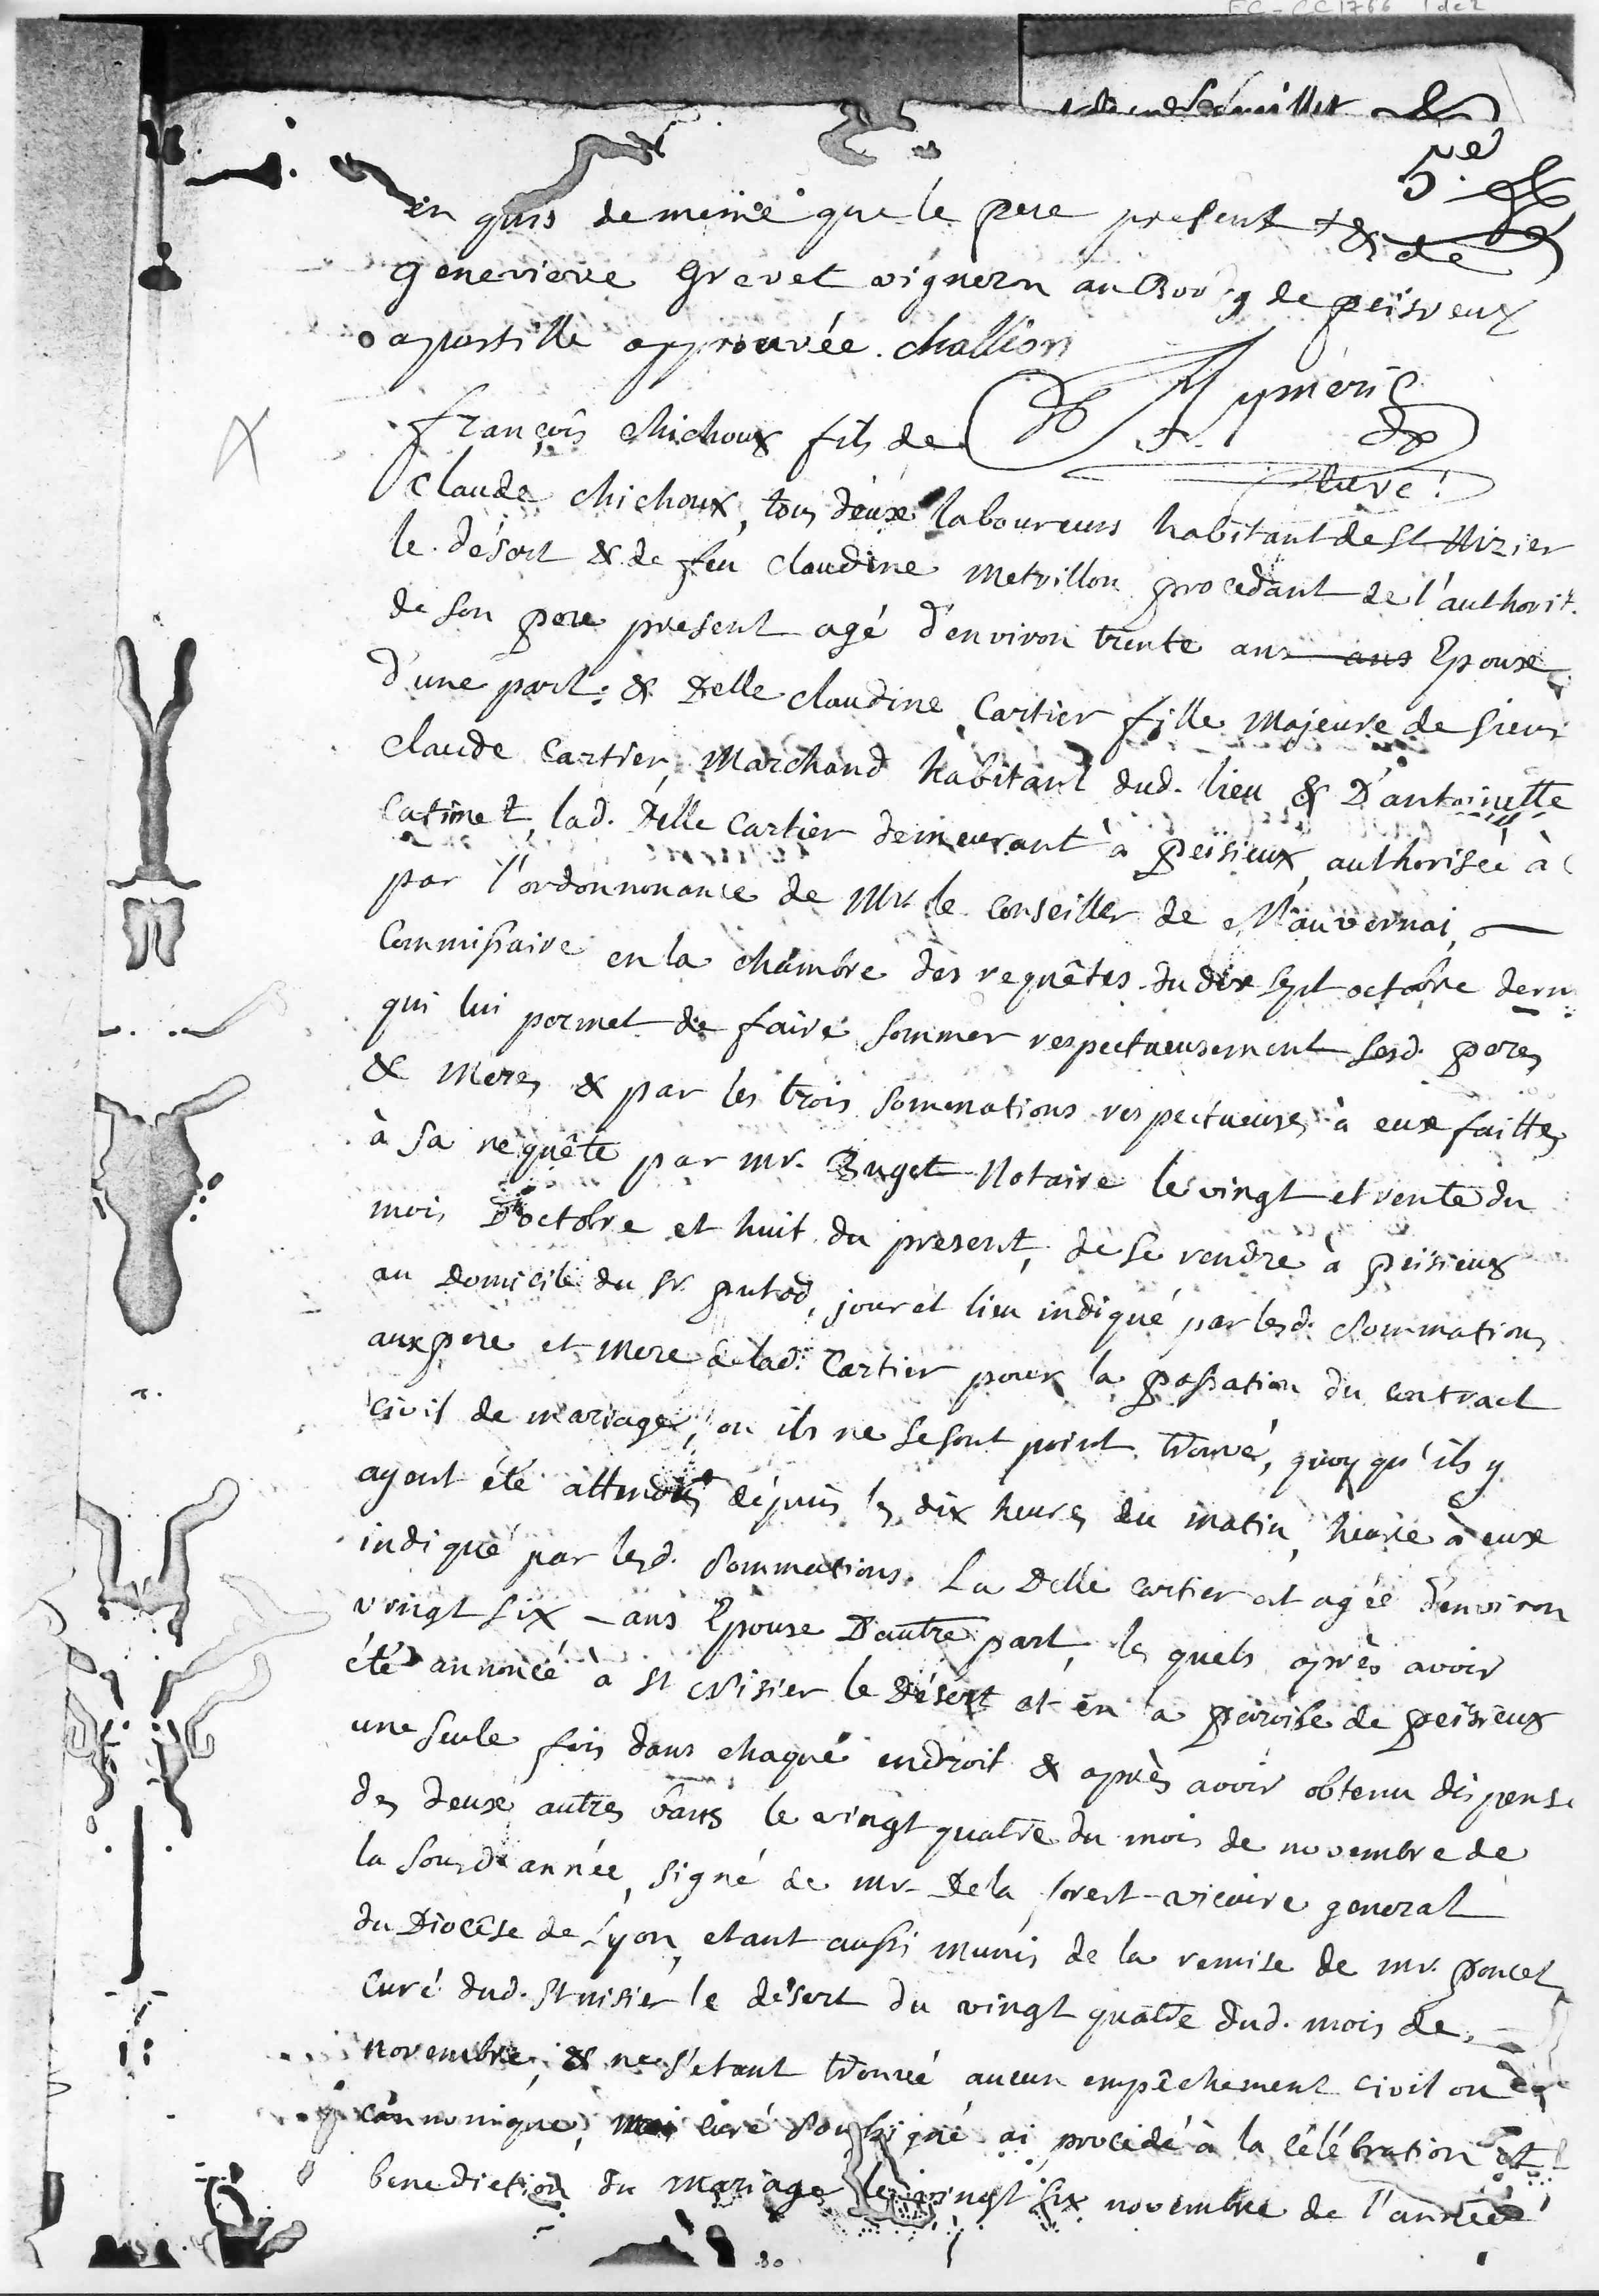 EC-CC1766 1 de 2
feuillet
5.e
en quis de meme que le pere present & de
genevieve Grevet vigneron au Bourg de peisieux
apostille approuvée. challion
Aymeric
françois chichoux fils de
curé
Claude chichoux, tous deux laboureurs habitant de St Nizier
le désert & de feu Claudine metrillon procedant de l'authorit.
de son pere present agé d'environ trente ans ans Epoux
d'une part: & Delle claudine Cartier fille Majeure de sieur
claude Cartier, Marchand habitant dud. lieu & D'antoinette
Catimet, lad. Delle Cartier demeurant à peisieux, authorisée à
par l'ordonnonance de Mr. le Conseiller de Mauvernai,
Commissaire en la chambre des requêtes du dix sept octobre dern
qui lui permet de faire sommer respectueusement sesd. peres
& meres & par les trois sommations respectueuses à eux faittes
à sa requête par mr. Buget Notaire le vingt et trente du
mois D'octobre et huit du present, de se rendre à peisieux
au Domicile du sr. putod, jour et lieu indiqué par lesd. Sommations
aux pere et mere de lad. Cartier pour la passation du contract
civil de mariage, ou ils ne se sont point trouvé, quoy qu'ils y
ayent été attendus dépuis les dix heures du matin, heure à eux
indiqué par lesd. Sommations. La Delle Cartier est agée d'environ
vingt six - ans Epouse D'autre part, les quels après avoir
été annoncé à St Nisier le Désert et en a paroisse de peisieux
une seule fois dans chaque endroit & après avoir obtenu dispense
des deux autres bans le vingt quatre du mois de novembre de
la sousd. année, signé de mr. Dela forest vicaire general
du Diocêse de Lyon, etant aussi munis de la remise de mr. poncet
Curé dud. St nisier le désert du vingt quatre dud. mois de
novembre, & ne s'etant trouvée aucun empêchement civil ou
cannonique, moi curé Soussigné ai procédé à la célébration et
benediction du mariage le vingt six novembre de l'année